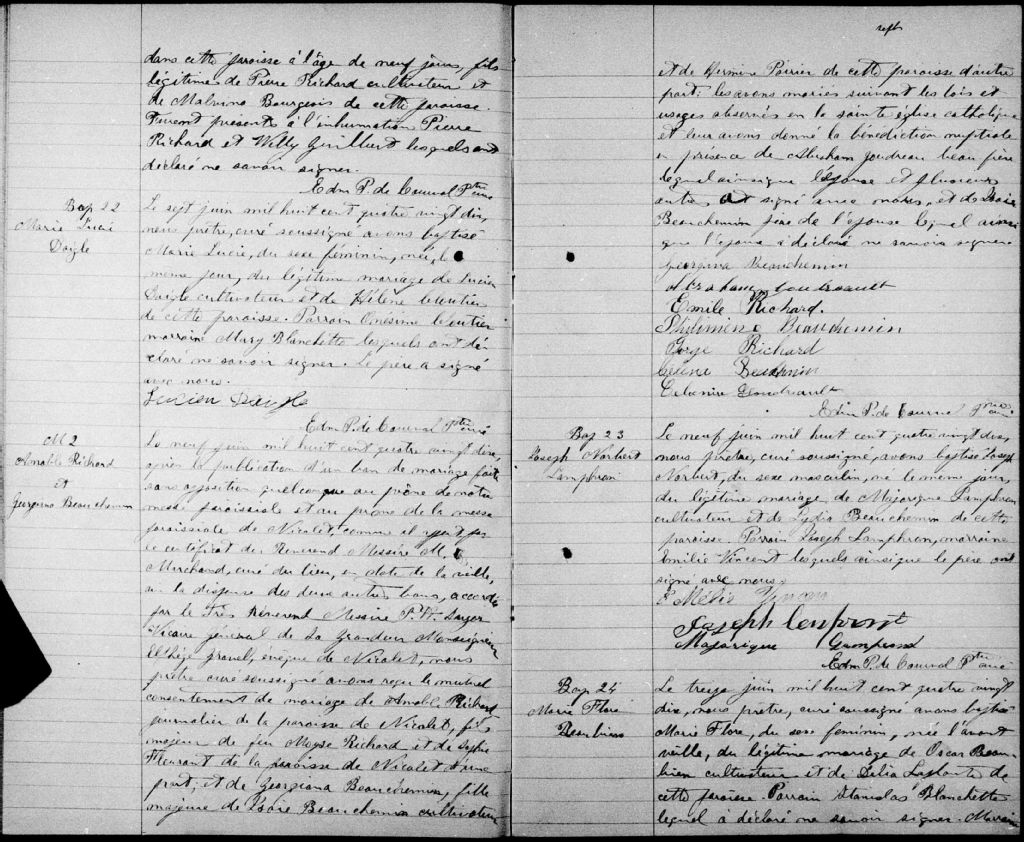 dans cette paroisse à l'âge de neuf jours, fils
légitime de Pierre Richard cultivateur et
de Malvina Bourgeois de cette paroisse.
Furent présents à l'inhumation Pierre
Richard et Willy Guilbert lesquels ont
déclaré ne savoir signer.
Edm P. de Courval Ptre curé
Bap 22
Marie Lucie
Daigle
Le sept juin mil huit cent quatre vingt dix,
nous prêtre, curé soussigné avons baptisé
Marie Lucie, du sexe féminin, née le
même jour, du légitime mariage de Lucien
Daigle cultivateur et de Hélène
de cette paroisse. Parrain Onésime
marraine Mary Blanchette lesquels ont dé-
claré ne savoir signer. Le père a signé
avec nous.
Lucien Daigle
Edm P. de Courval Ptre curé
M 2
Anable Richard
et
Georgina Beauchemin
Le neuf juin mil huit cent quatre vingt dix,
après la publication d'un ban de mariage faite
sans opposition quelconque au prône de notre
messe paroissiale et au prône de la messe
paroissiale de Nicolet, comme il appert par
le certificat du Révérend Messire M. G.
Marchand, curé du lieu, en date de la veille,
vu la dispense des deux autres bans, accordée
par le Très Révérend Messire
Vicaire général de Sa Grandeur Monseigneur
Elzéar Gravel, évêque de Nicolet, nous
prêtre curé soussigné avons reçu le mutuel
consentement de mariage de Anable Richard
journalier de la paroisse de Nicolet, fils
majeur de feu Moyse Richard et de Sophie
Fleurant de la paroisse de Nicolet d'une
part; et de Georgiana Beauchemin, fille
majeure de Isaïe Beauchemin cultivateur
sept
et de Hermine Poirier de cette paroisse d'autre
part: les avons mariés suivant les lois et
usages observés en la sainte église catholique
et leur avons donné la bénédiction nuptiale
en présence de Abraham Goudreau beau père
lequel ainsi que l'épouse et plusieurs
autres ont signé avec nous, et de Isaïe
Beauchemin père de l'épouse lequel ainsi
que l'époux a déclaré ne savoir signer
Georgina Beauchemin
Abraham Goudreault
Emile Richard.
Philimène Beauchemin
George Richard
Céline Beauchemin
Goudreault
Edm P. de Courval Ptre curé
Bap 23
Joseph Norbert
Lamphron
Le neuf juin mil huit cent quatre vingt dix,
nous prêtre, curé soussigné, avons baptisé Joseph
Norbert, du sexe masculin, né le même jour,
du légitime mariage de Majorique Lamphron
cultivateur et de Lydia Beauchemin de cette
paroisse. Parrain Joseph Lamphron, marraine
Emilie Vincent lesquels ainsi que le père ont
signé avec nous.
Vincent
Joseph Lenpront
Majorique
Edm P. de Courval Ptre curé
Bap 24
Marie Flore
Beaubien
Le treize juin mil huit cent quatre vingt
dix, nous prêtre, curé soussigné avons baptisé
Marie Flore, du sexe féminin, née l'avant
veille, du légitime mariage de Oscar Beau-
bien cultivateur et de Délia Laplante de
cette paroisse. Parrain Stanislas Blanchette
lequel a déclaré ne savoir signer. Marraine